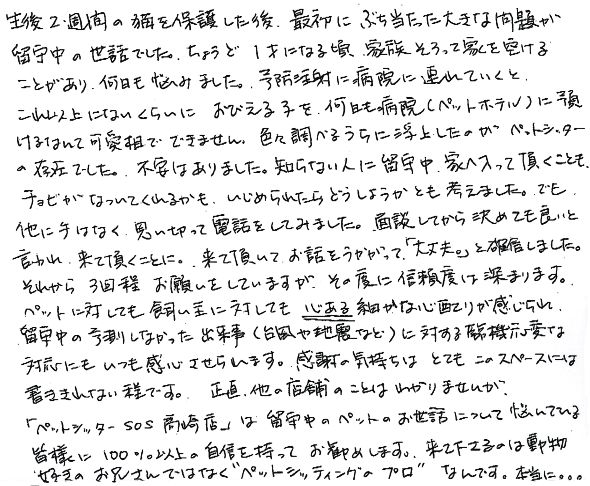 生後2週間の猫を保護した後、最初にぶち当たった大きな問題が
留守中の世話でした。ちょうど1才になる頃、家族そろって家を空ける
ことがあり、何日も悩みました。予防注射に病院に連れていくと、
これ以上にないくらいに おびえる子を、何日も病院(ペットホテル)に預
けるなんて可愛相で できません。色々調べるうちに浮上したのが ペットシッター
の存在でした。不安はありました。知らない人に留守中、家へ入って頂くことも、
チョビがなついてくれるかも、いじめられたらどうしようかとも考えました。でも、
他に手はなく、思い切って電話をしてみました。面談してから決めても良いと
言われ、来て頂くことに。来て頂いて、お話をうかがって、「大丈夫。」と確信しました。
それから 3回程 お願いをしていますが、その度に信頼度は深まります。
ペットに対しても 飼い主に対しても 心ある細かな心配りが感じられ、
留守中の予測しなかった出来事(台風や地震など)に対する臨機応変な
対応にも いつも感心させられます。感謝の気持ちは とても このスペースには
書ききれない程です。 正直、他の店舗のことはわかりませんが、
「ペットシッターSOS高崎店」は 留守中のペットのお世話について悩んでいる
皆様に 100%以上の自信を持って お勧めします。来て下さるのは動物
好きのお兄さんではなく“ペットシッティングのプロ” なんです。本当に。。。